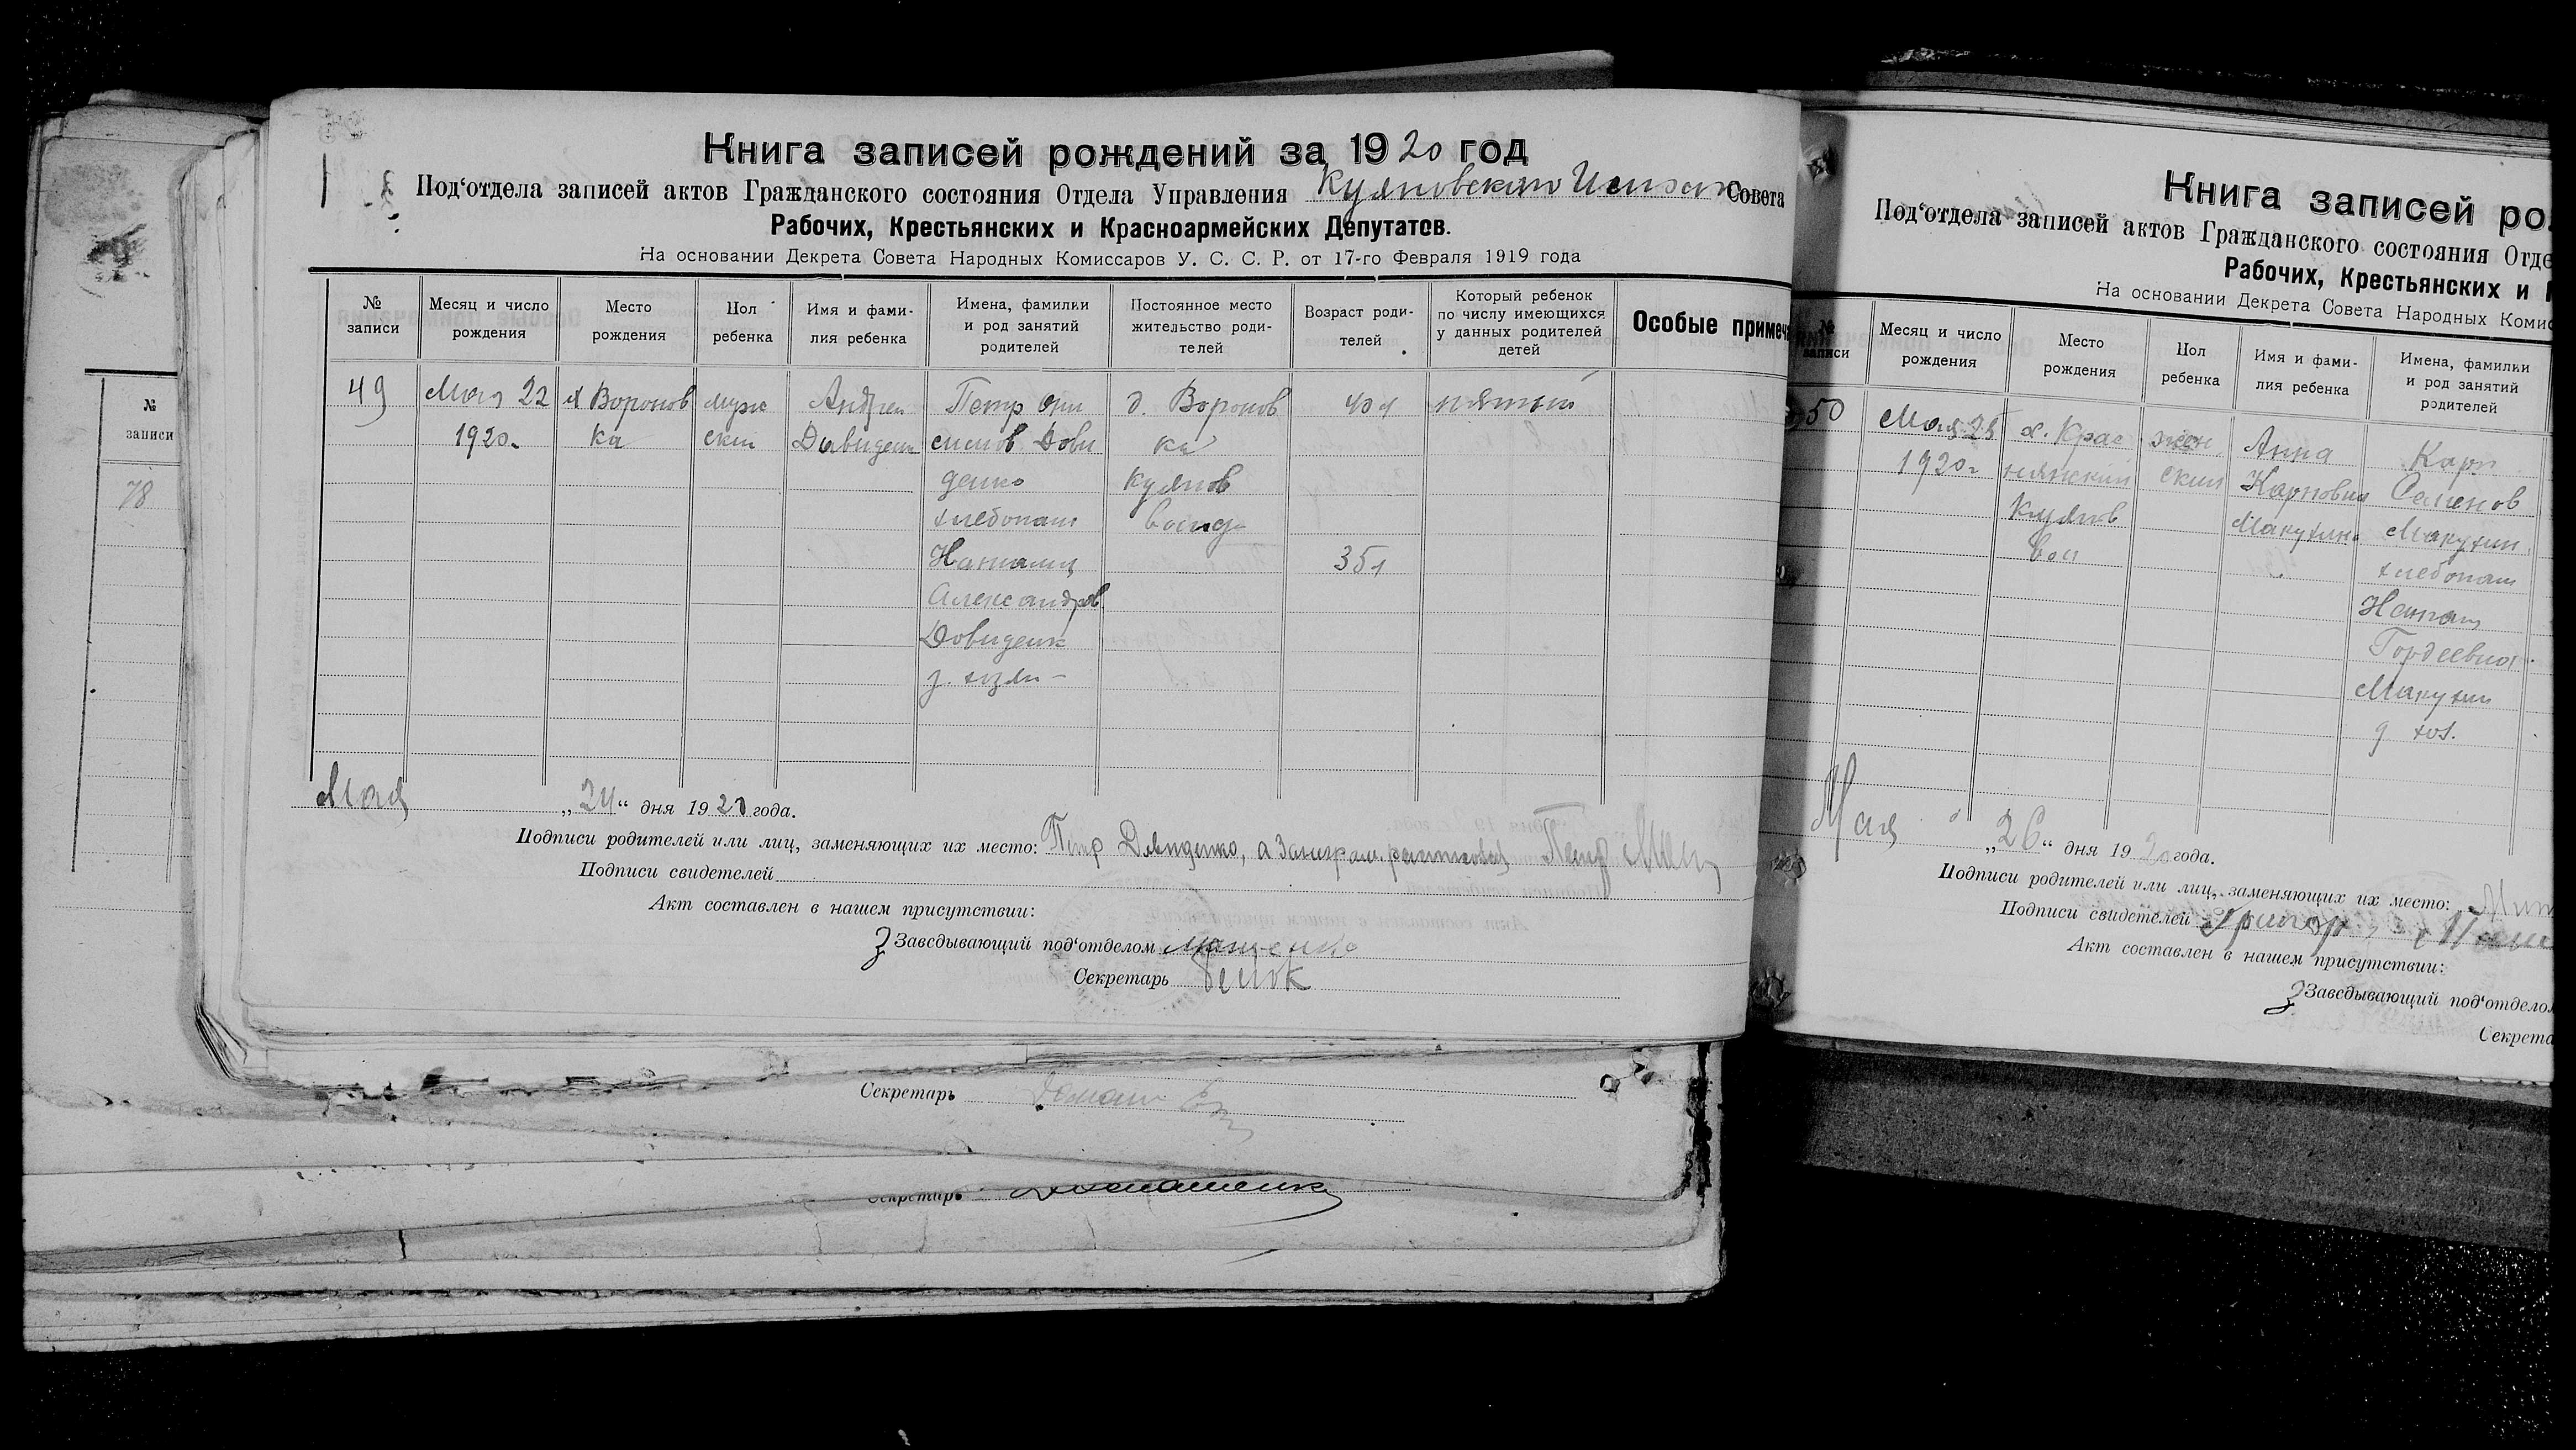 Книга записей рождений за 1920 год
Под‘отдела записей актов Гражданского состояния Отдела Управления Совета
Рабочих, Крестьянских и Красноармейских Депутатов.
На основании Декрета Совета Народных Комиссаров У. С. С. Р. от 17-го Февраля 1919 года
№ записи
Месяц и число рождения
Место рождения
Пол ребенка
Имя и фамилия ребенка
Имена, фамилки и род занятий родителей
Постоянное место жительство родителей
Возраст родителей
Который ребенок по числу имеющихся у данных родителей детей
Особые примеч
49
Мая 22
1920
х Воронов
ка
муж
ский
Андрей
Давиден
Петр Они
симов Дови
денко
хлебопаш
Наталия
Александров
Довиденк
д. Воронов
ка
Куянов
волод
40 л
35 л
пятый
Мая „24“ дня 1920 года.
Подписи родителей или лиц, заменяющих их место: Петр Давиденко, а за неграм. расписался Петр
Подписи свидетелей
Акт составлен в нашем присутствии:
Завсдывающий под‘отделом
Секретарь
Секретарь
Секретарь
№
записи
78
Книга записей ро
Под‘отдела записей актов Гражданского состояния Отде
Рабочих, Крестьянских и
На основании Декрета Совета Народных Комис
№ записи
Месяц и число рождения
Место рождения
Пол ребенка
Имя и фамилия ребенка
Имена, фамилки и род занятий родителей
50
Мая 25
1920 г
х. Крас
нянский
Куянов
вол
жен
ский
Анна
Карповна
Макухина
Карп
Семенов
Макухин
хлебопаш
Натал
Гордеевна
Макухин
д хоз.
Мая „26“ дня 1920 года.
Подписи родителей или лиц, заменяющих их место:
Подписи свидетелей Григор
Акт составлен в нашем присутствии:
Завсдывающий под‘отдело
Секрета